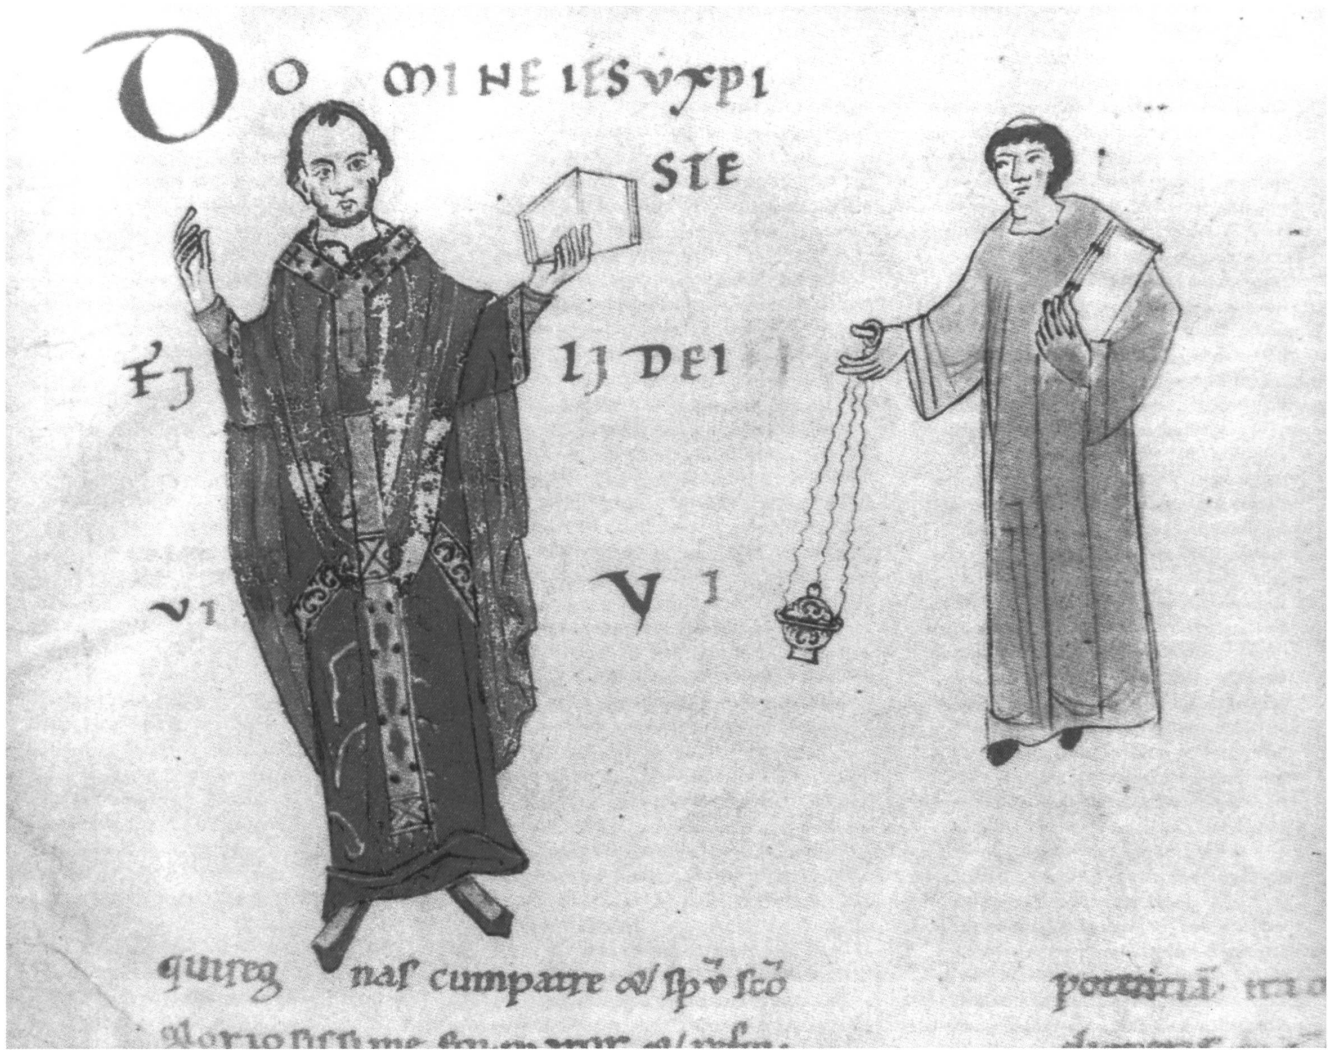 DOMINE IESU XPI
STE
FI LIJ DEI
VI VI
qui reg nas cum patre & spū scō
gloriosissime
potentiā